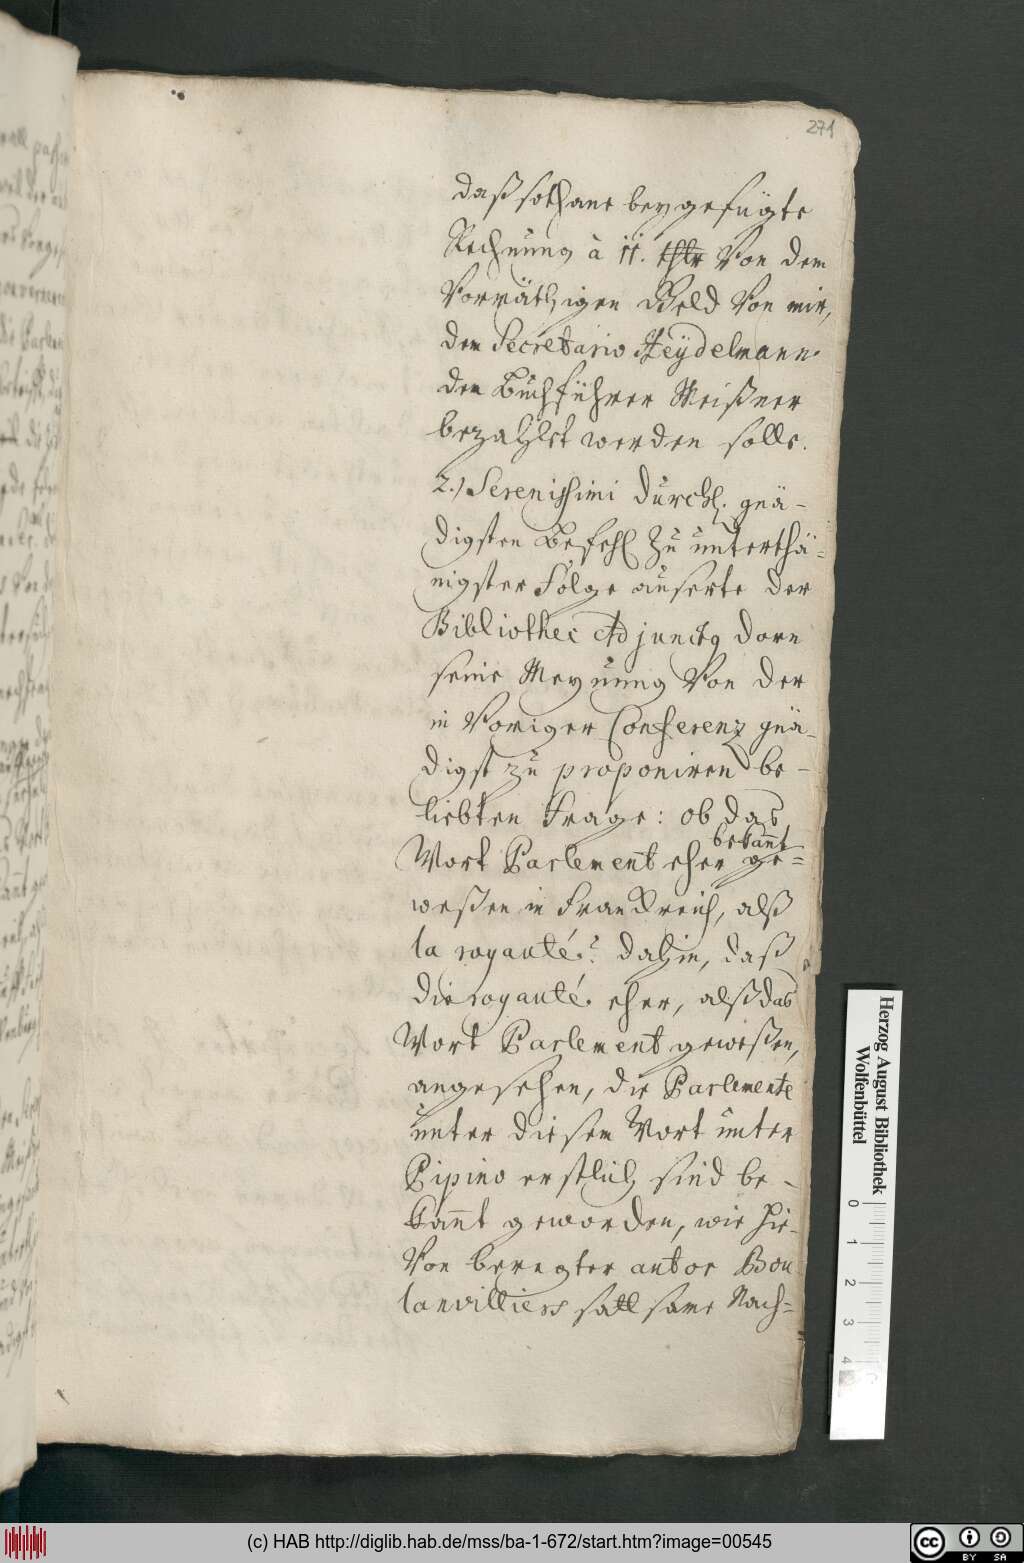 271
daß sothane beygefügte
Rechnung à 11. thlr Von dem
Vorräthigen Geld Von mir,
dem Secretario Heÿdelmann
dem Buchführer Meißner
bezahlet werden solle.
2.) Serenissimi Durchl. gnä-
digsten Befehl zu unterthä-
nigster Folge äuserte der
Bibliothec Adjunctg Dorn
seine Meynung Von der
in Voriger Conferenz gnä-
digst zu proponiren be-
liebten Frage: ob das
bekannt
Wort Parlement eher ge-
weßen in Franckreich, alß
la royauté? dahin, daß
die royauté eher, alß das
Wort Parlement geweßen,
angesehen, die Parlemente
unter diesem Wort unter
Pipino erstlich sind be-
kannt geworden, wie hie-
Von beregter autor Bou
lanvilliers sattsame Nach-
Herzog August Bibliothek
Wolfenbüttel
0
1
2
3
4
(c) HAB http://diglib.hab.de/mss/ba-1-672/start.htm?image=00545
cc BY SA